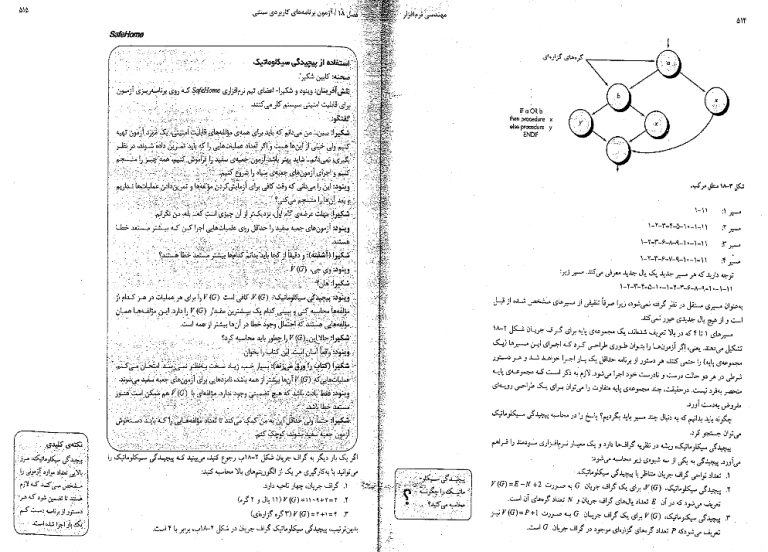 ۵۱۴
مهندسی نرم‌افزار
گره‌های گزاره‌ای
a
b
x
y
x
IF a OR b
then procedure x
else procedure y
ENDIF
شکل ۳-۱۸ منطق مرکب.
مسیر ۱: ۱۱-۱
مسیر ۲: ۱۱-۱-۱۰-۵-۴-۳-۲-۱
مسیر ۳: ۱۱-۱-۱۰-۹-۸-۶-۳-۲-۱
مسیر ۴: ۱۱-۱-۱۰-۹-۷-۶-۳-۲-۱
توجه دارید که هر مسیر جدید یک یال جدید معرفی می‌کند. مسیر زیر:
۱۱-۱-۱۰-۹-۸-۶-۳-۲-۱-۱۰-۵-۴-۳-۲-۱
به‌عنوان مسیری مستقل در نظر گرفته نمی‌شود، زیرا صرفاً تلفیقی از مسیرهای مشخص شده از قبل
است و از هیچ یال جدیدی عبور نمی‌کند.
مسیرهای ۱ تا ۴ که در بالا تعریف شده‌اند، یک مجموعه‌ی پایه برای گراف جریان شکل ۲-۱۸
تشکیل می‌دهند. یعنی، اگر آزمون‌ها را بتوان طوری طراحی کرد که اجرای این مسیرها (یک
مجموعه‌ی پایه) را حتمی کنند، هر دستور از برنامه حداقل یک بار اجرا خواهد شد و هر دستور
شرطی در هر دو حالت درست و نادرست خود اجرا می‌شود. لازم به ذکر است که مجموعه‌ی پایه
منحصر به‌فرد نیست. درحقیقت، چند مجموعه‌ی پایه متفاوت را می‌توان برای یک طراحی رویه‌ای
مفروض به‌دست آورد.
چگونه باید بدانیم که به دنبال چند مسیر باید بگردیم؟ پاسخ را در محاسبه پیچیدگی سیکلوماتیک
می‌توان جستجو کرد.
پیچیدگی سیکلوماتیک، ریشه در نظریه گراف‌ها دارد و یک معیار نرم‌افزاری سودمند را فراهم
می‌آورد. پیچیدگی به یکی از سه شیوه‌ی زیر محاسبه می‌شود:
۱. تعداد نواحی گراف جریان متناظر با پیچیدگی سیکلوماتیک.
۲. پیچیدگی سیکلوماتیک، V(G)، برای یک گراف جریان G به صورت V(G)=E-N+2
تعریف می‌شود که در آن E تعداد یال‌های گراف جریان و N تعداد گره‌های آن است.
۳. پیچیدگی سیکلوماتیک، V(G) برای یک گراف جریان G به صورت V(G)=P+1 نیز
تعریف می‌شود که P تعداد گره‌های گزاره‌ای موجود در گراف جریان G است.
پیچیدگی سیکلو-
ماتیک را چگونه
محاسبه می‌کنید؟
؟
فصل ۱۸ / آزمون برنامه‌های کاربردی سنتی
۵۱۵
SafeHome
استفاده از پیچیدگی سیکلوماتیک
صحنه: کابین شکیرا.
نقش آفرینان: وینود و شکیرا- اعضای تیم نرم‌افزاری SafeHome که روی برنامه‌ریزی آزمون
برای قابلیت امنیتی سیستم کار می‌کنند.
گفتگو:
شکیرا: ببین، من می‌دانم که باید برای همه‌ی مؤلفه‌های قابلیت امنیتی، یک آزمون تهیه
کنیم ولی خیلی از این‌ها هست و اگر تعداد عملیات‌هایی را که باید تمرین داده شوند، در نظر
بگیری، نمی‌دانم... شاید بهتر باشد آزمون جعبه‌ی سفید را فراموش کنیم، همه چیز را منسجم
کنیم و اجرای آزمون‌های جعبه‌ی سیاه را شروع کنیم.
وینود: این را می‌دانی که وقت کافی برای آزمایش‌کردن مؤلفه‌ها و تمرین‌دادن عملیات‌ها نداریم
و بعد آن‌ها را منسجم می‌کنی؟
شکیرا: مهلت عرضه‌ی گام اول، نزدیک‌تر از آن چیزی است که... بله، من نگرانم.
وینود: آزمون‌های جعبه سفید را حداقل روی عملیات‌هایی اجرا کن که بیشتر مستعد خطا
هستند.
شکیرا (آشفته): و دقیقاً از کجا باید بدانم کدام‌ها بیشتر مستعد خطا هستند؟
وینود: وی جی. V(G)
شکیرا: هان؟
وینود: پیچیدگی سیکلوماتیک: V(G). کافی است V(G) را برای هر عملیات در هر کدام از
مؤلفه‌ها محاسبه کنی و ببینی کدام یک بیشترین مقدار V(G) را دارد. این مؤلفه‌ها همان
مؤلفه‌هایی هستند که احتمال وجود خطا در آن‌ها بیشتر از همه است.
شکیرا: حالا این V(G) را چطور باید محاسبه کرد؟
وینود: واقعاً آسان است. این کتاب را بخوان
شکیرا (کتاب را ورق می‌زند): بسیار خب، زیاد سخت به‌نظر نمی‌رسد. امتحان می‌کنم.
عملیات‌هایی که V(G) آن‌ها بیشتر از همه باشد، نامزدهایی برای آزمون‌های جعبه سفید می‌شوند.
وینود: فقط یادت باشد که هیچ تضمینی وجود ندارد. مؤلفه‌ای با V(G) کم ممکن است هنوز
مستعد خطا باشد.
شکیرا: حتماً. ولی حداقل این به من کمک می‌کند تا تعداد مؤلفه‌هایی را که باید دستخوش
آزمون جعبه سفید بشوند، کوچک کنم.
اگر یک بار دیگر به گراف جریان شکل ۲-۱۸ب، رجوع کنید، می‌بینید که پیچیدگی سیکلوماتیک را
می‌توانید با به‌کارگیری هر یک از الگوریتم‌های بالا محاسبه کنید:
۱. گراف جریان، چهار ناحیه دارد.
۲. V(G)=۱۱-۹+۲=۴ (۱۱ یال و ۹ گره)
۳. V(G)=۳+۱=۴ (۳ گره گزاره‌ای)
بدین‌ترتیب، پیچیدگی سیکلوماتیک گراف جریان در شکل ۲-۱۸ب، برابر با ۴ است.
نکته‌ی کلیدی
پیچیدگی سیکلوماتیک، مرز
بالایی تعداد موارد آزمونی را
مشخص می‌کند که لازم
هستند تا تضمین شود که هر
دستور از برنامه دست کم
یک بار اجرا شده است.